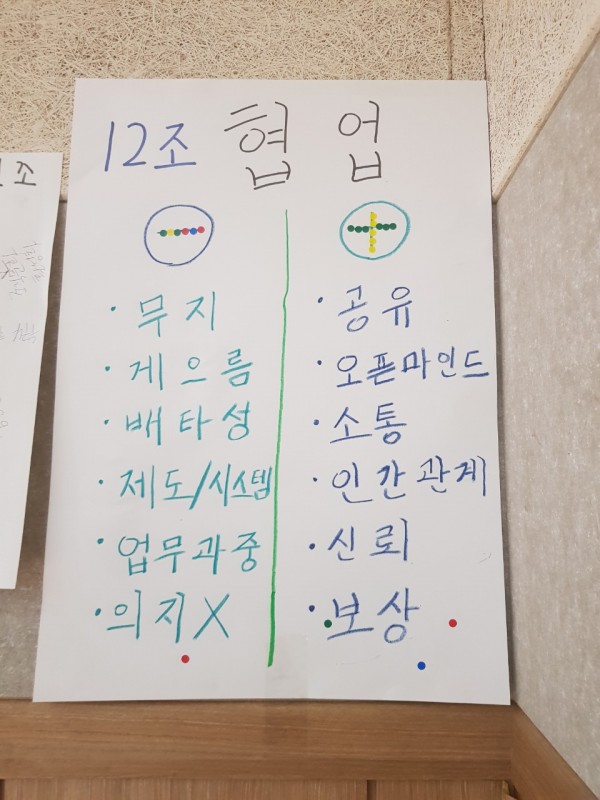 12조 협업
· 무지
· 게으름
· 배타성
· 제도/시스템
· 업무과중
· 의지X
· 공유
· 오픈마인드
· 소통
· 인간관계
· 신뢰
· 보상
조